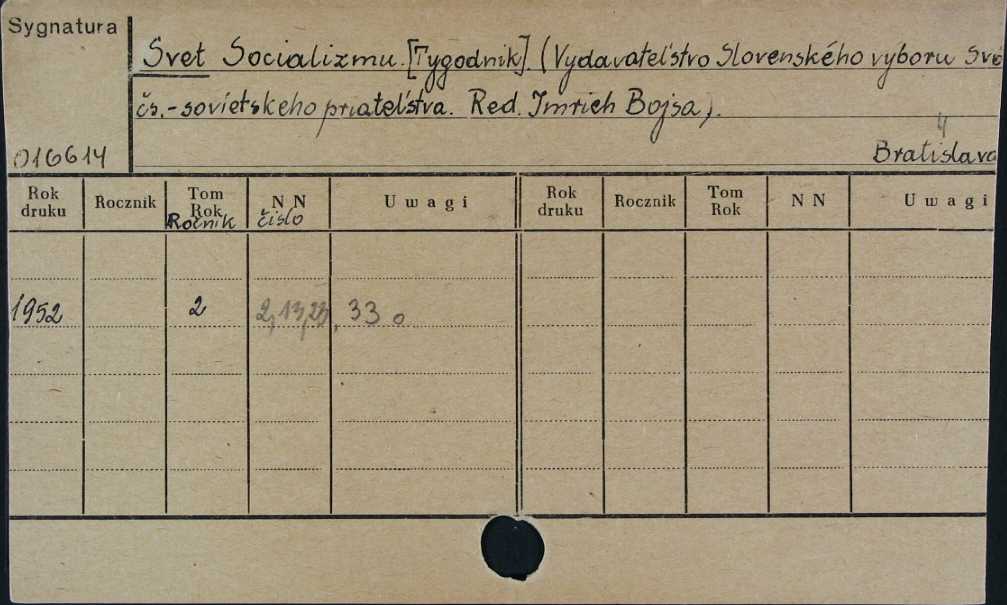 Sygnatura
Svet Socializmu. [Tygodnik]. (Vydavateľstvo Slovenského vyboru Sve
čs.-sovietskeho priateľstva. Red. Imrich Bojsa).
4
016614 Bratislava
Rok druku Rocznik Tom Rok Ročnik N N čislo Uwagi Rok druku Rocznik Tom Rok N N Uwagi
1952 2 2, 13, 23, 33 o